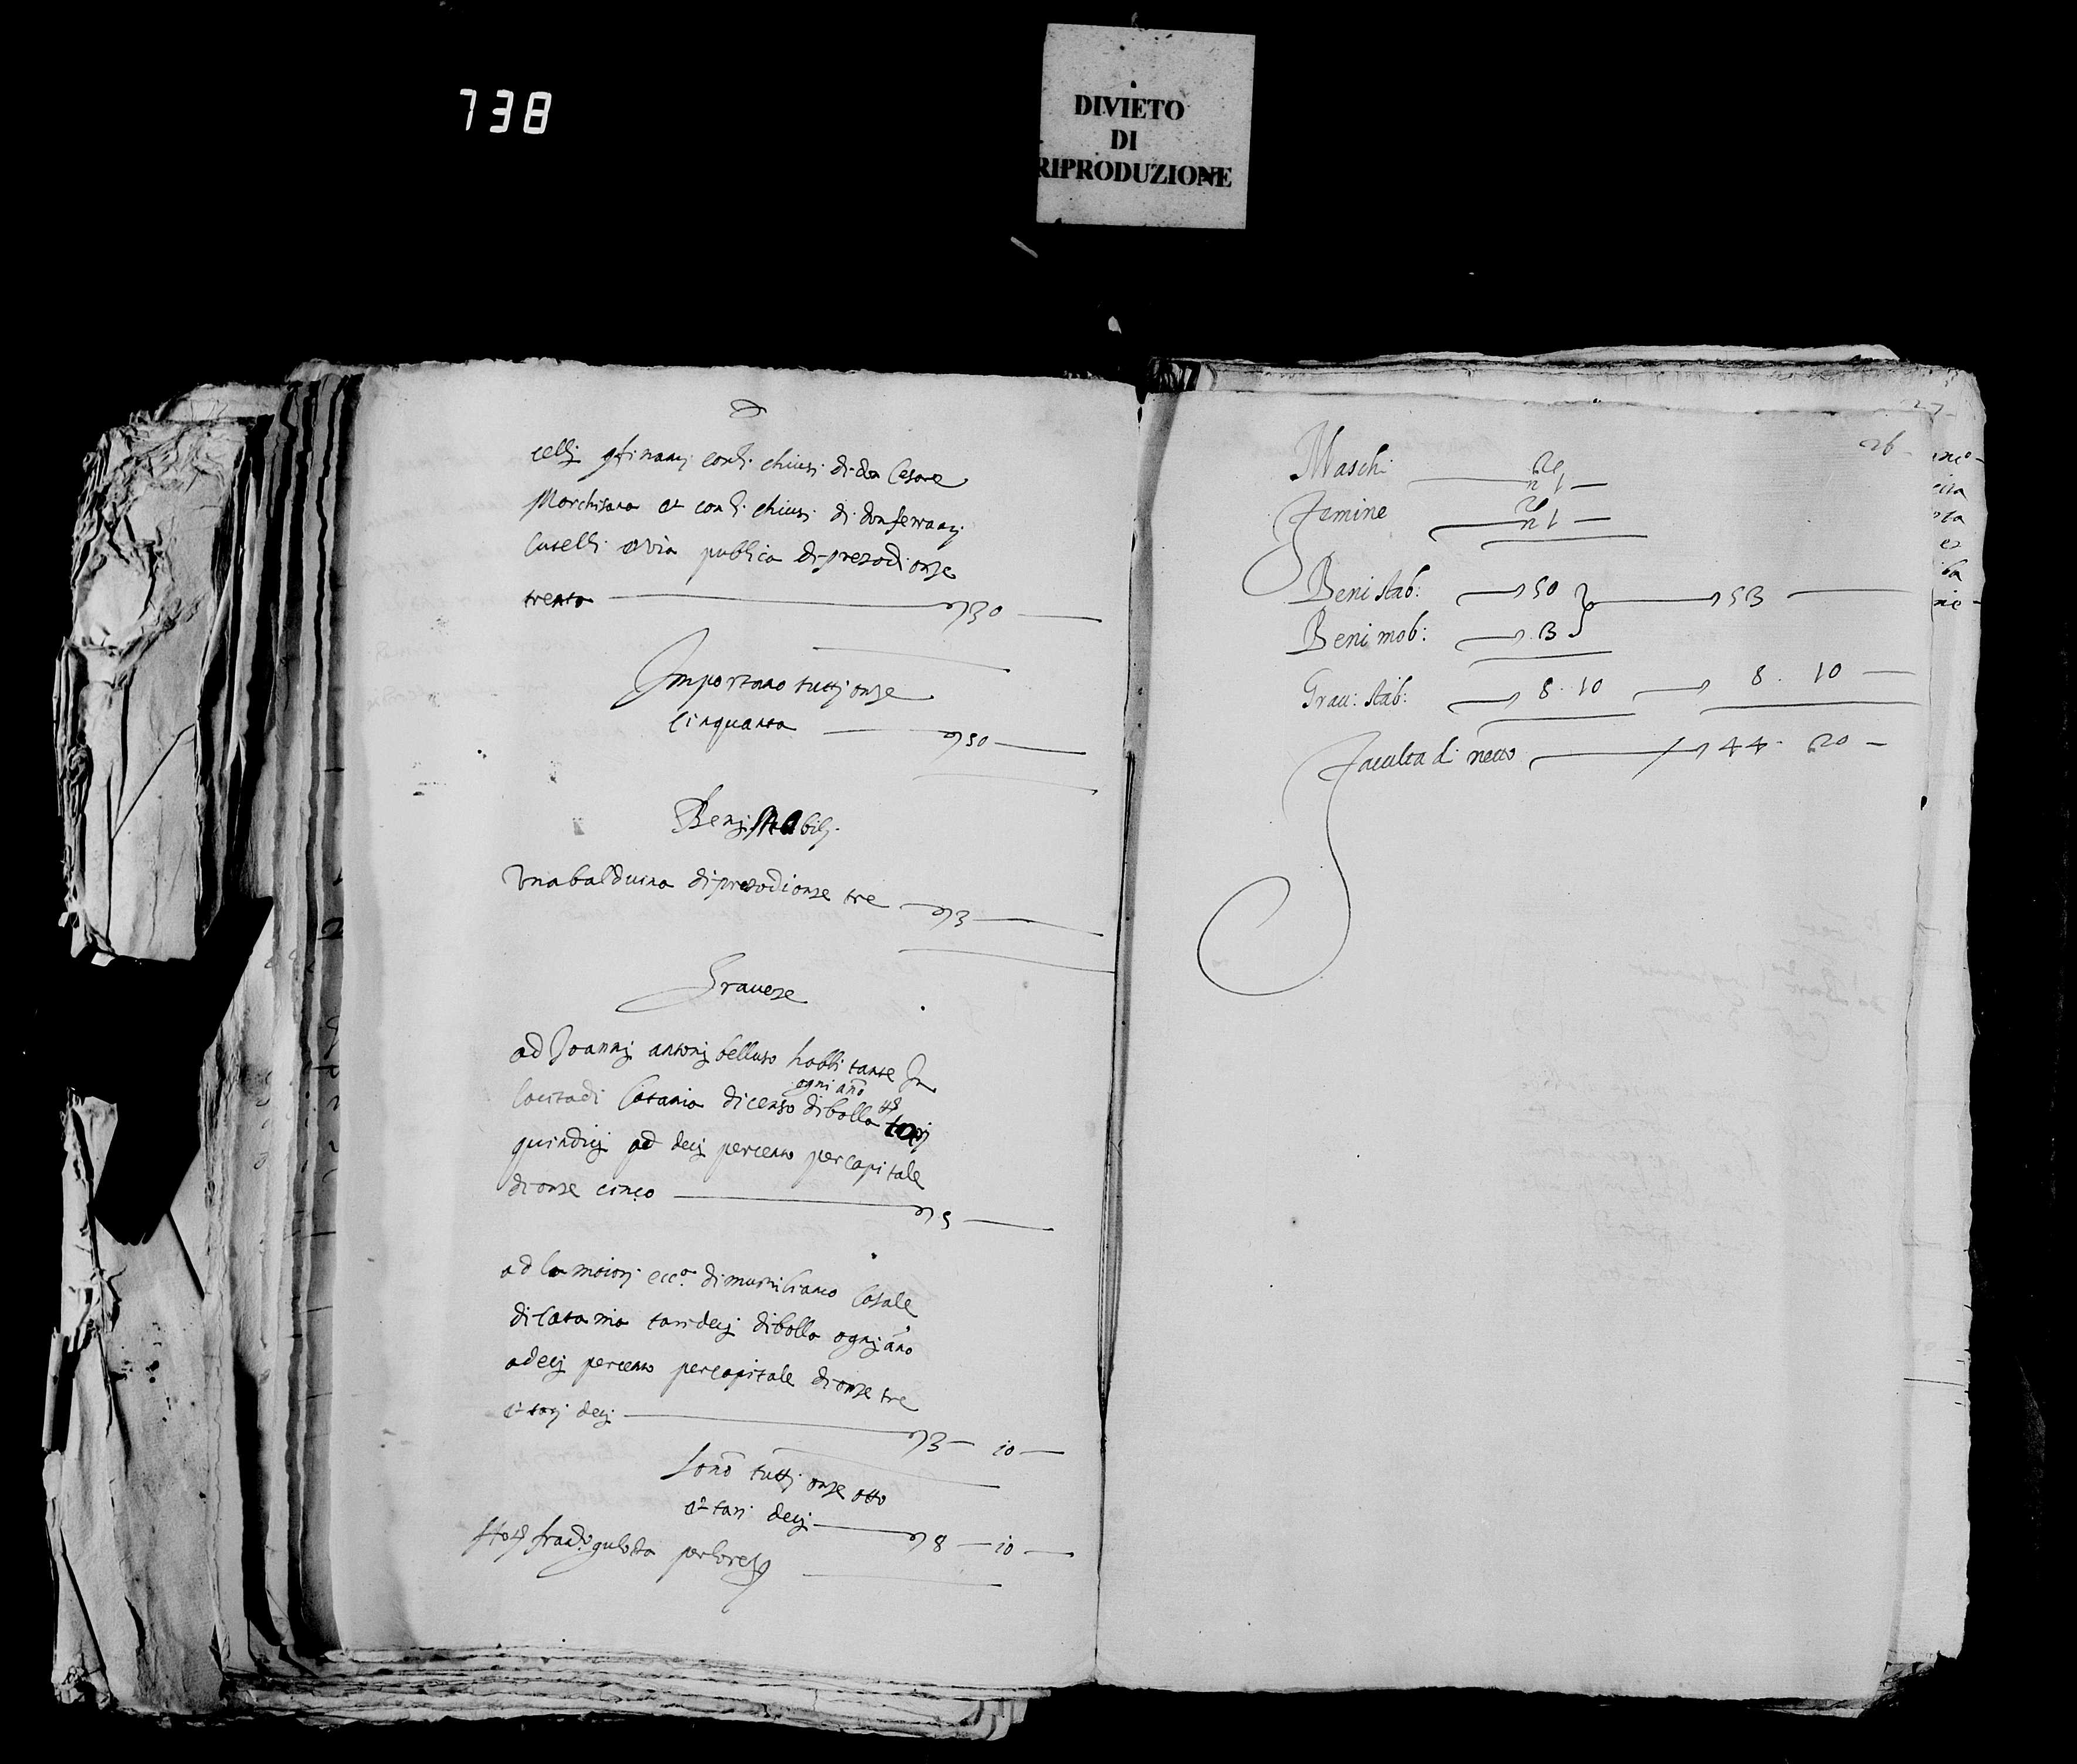 738
DIVIETO
DI
RIPRODUZIONE
celli confinanti con li chiusi di don Cesare
Marchisana et con li chiusi di don ferranti
Cutelli et via publica di prezo di onze
trenta 30
Importano tutti onze
Cinquanta 50
Beni Mobili
Una balduina di prezo di onze tre 3
Graveze
ad Joanni antoni belluso habbitante In
la cita di Catania di censo di bolla
ogni anno
quindici ad deci per cento per capitale
di onze cinco 5
ad la maiori ecc.a di Casale
di Catania tari deci di bolla ogni anno
a deci per cento per capitale di onze tre
et tari deci 3 10
Sono tutti onze otto
et tari deci 8 10
26
Maschi n 1
Femine n 1
Beni stab: 50 53
Beni mob: 3
Grav: stab: 8. 10 8. 10
Faculta di netto 44. 20